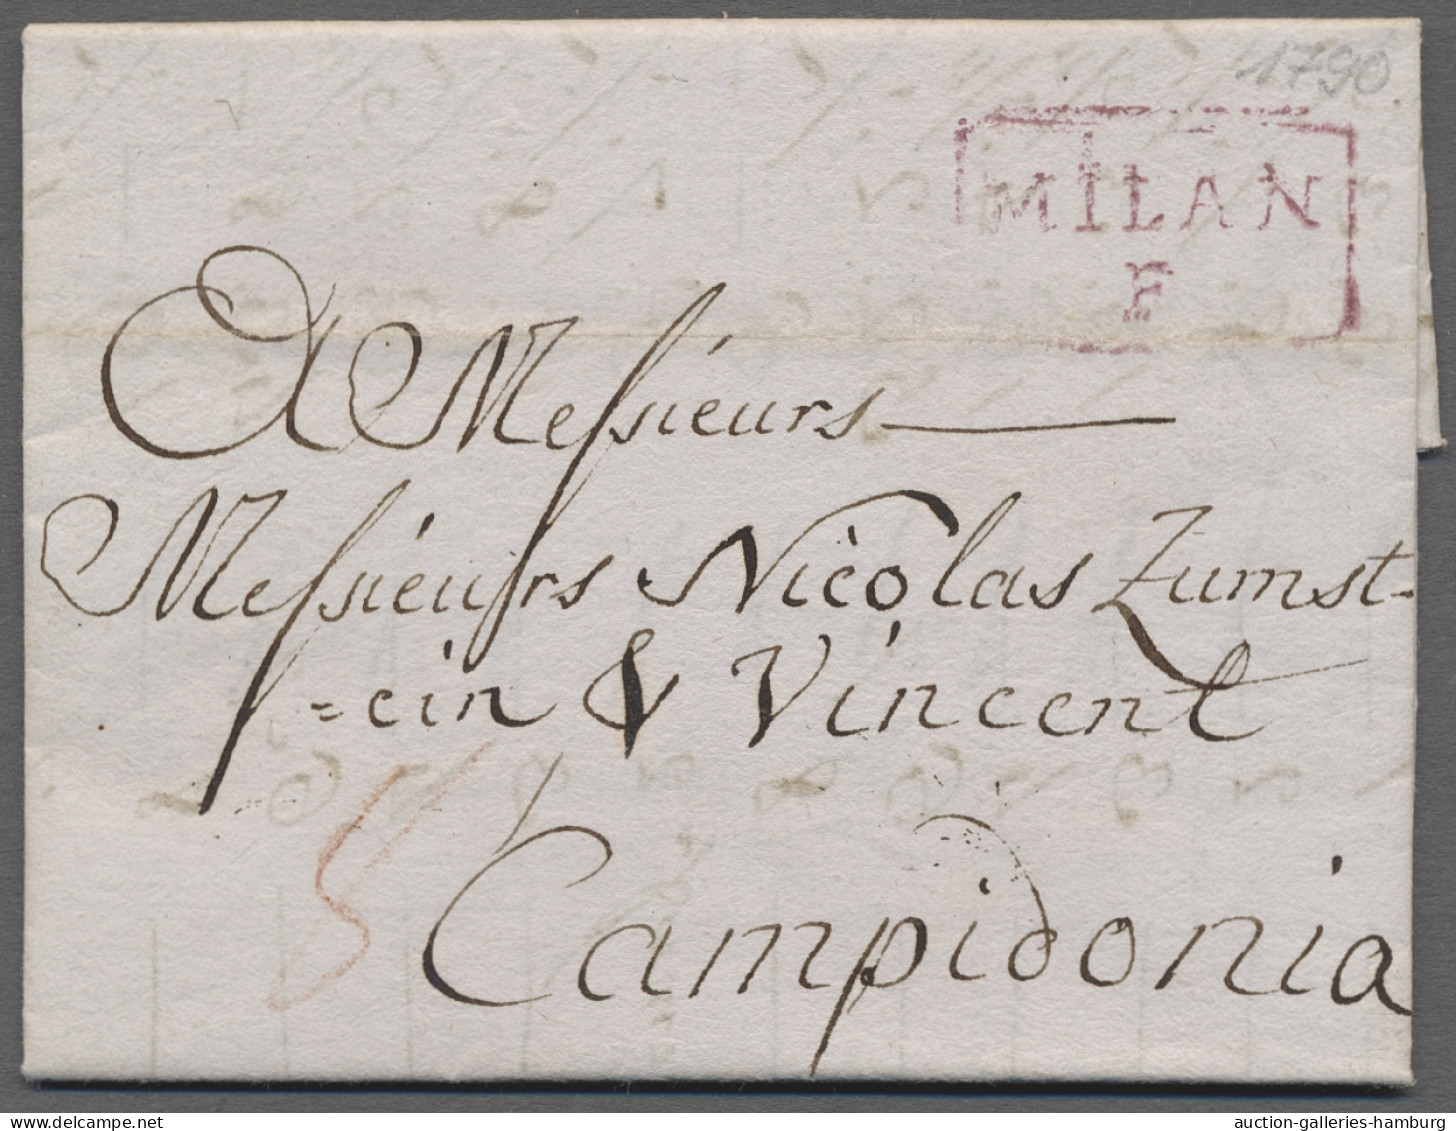 1790
MILAN
F
A Messieurs
Messieurs Nicolas Zumst-
=ein & Vincent
Campidonia
auction-galleries-hamburg